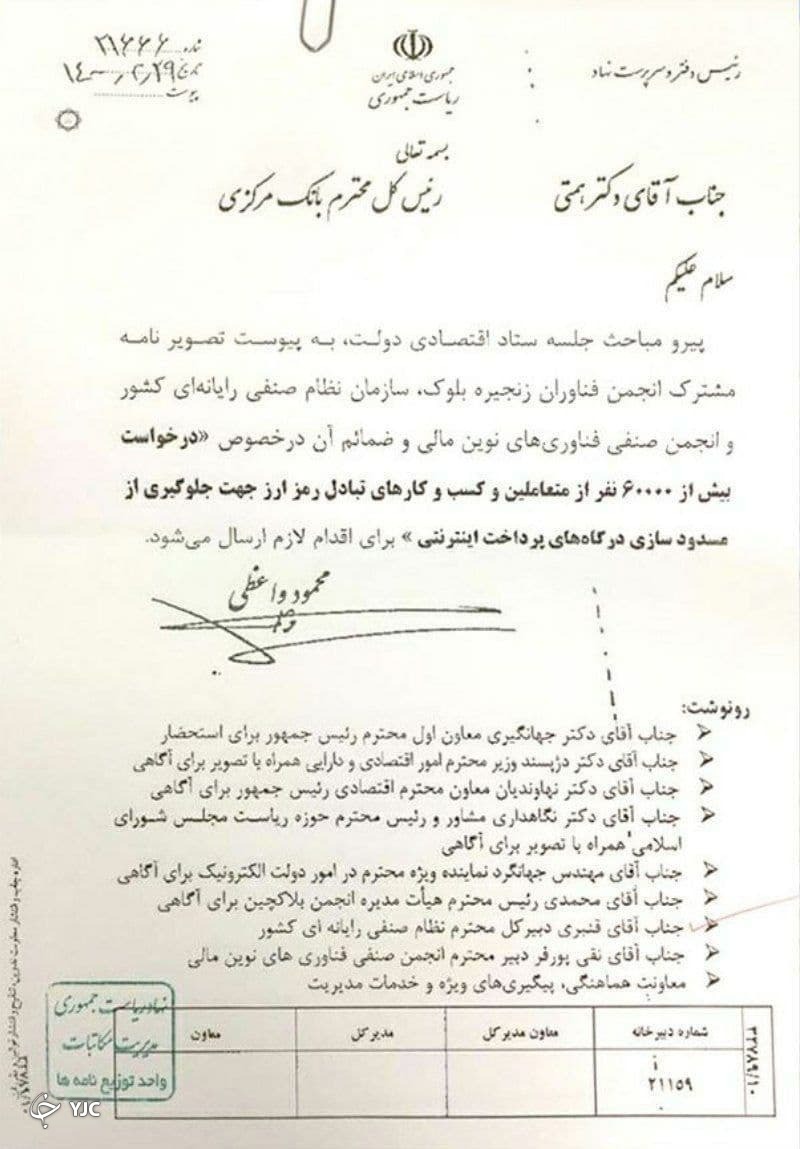 رئیس دفتر و سرپرست نهاد
جمهوری اسلامی ایران
ریاست جمهوری
شماره ۲۱۶۶۶
تاریخ ۱۴۰۰/۲/۲۹
پیوست
بسمه تعالی
جناب آقای دکتر همتی
رئیس کل محترم بانک مرکزی
سلام علیکم
پیرو مباحث جلسه ستاد اقتصادی دولت، به پیوست تصویر نامه
مشترک انجمن فناوران زنجیره بلوک، سازمان نظام صنفی رایانه‌ای کشور
و انجمن صنفی فناوری‌های نوین مالی و ضمائم آن درخصوص «درخواست
بیش از ۶۰۰۰۰ نفر از متعاملین و کسب و کارهای تبادل رمز ارز جهت جلوگیری از
مسدود سازی درگاه‌های پرداخت اینترنتی» برای اقدام لازم ارسال می‌شود.
محمود واعظی
رونوشت:
جناب آقای دکتر جهانگیری معاون اول محترم رئیس جمهور برای استحضار
جناب آقای دکتر دژپسند وزیر محترم امور اقتصادی و دارایی همراه با تصویر برای آگاهی
جناب آقای دکتر نهاوندیان معاون محترم اقتصادی رئیس جمهور برای آگاهی
جناب آقای دکتر نگاهداری مشاور و رئیس محترم حوزه ریاست مجلس شورای
اسلامی همراه با تصویر برای آگاهی
جناب آقای مهندس جهانگرد نماینده ویژه محترم در امور دولت الکترونیک برای آگاهی
جناب آقای محمدی رئیس محترم هیأت مدیره انجمن بلاکچین برای آگاهی
جناب آقای قنبری دبیرکل محترم نظام صنفی رایانه ای کشور
جناب آقای نقی پورفر دبیر محترم انجمن صنفی فناوری های نوین مالی
معاونت هماهنگی، پیگیری‌های ویژه و خدمات مدیریت
شماره دبیرخانه
معاون مدیرکل
مدیرکل
معاون
۲۱۱۵۹
۳۲۷۸۹/۱۰
نهاد ریاست جمهوری
مدیریت مکاتبات
واحد توزیع نامه ها
YJC